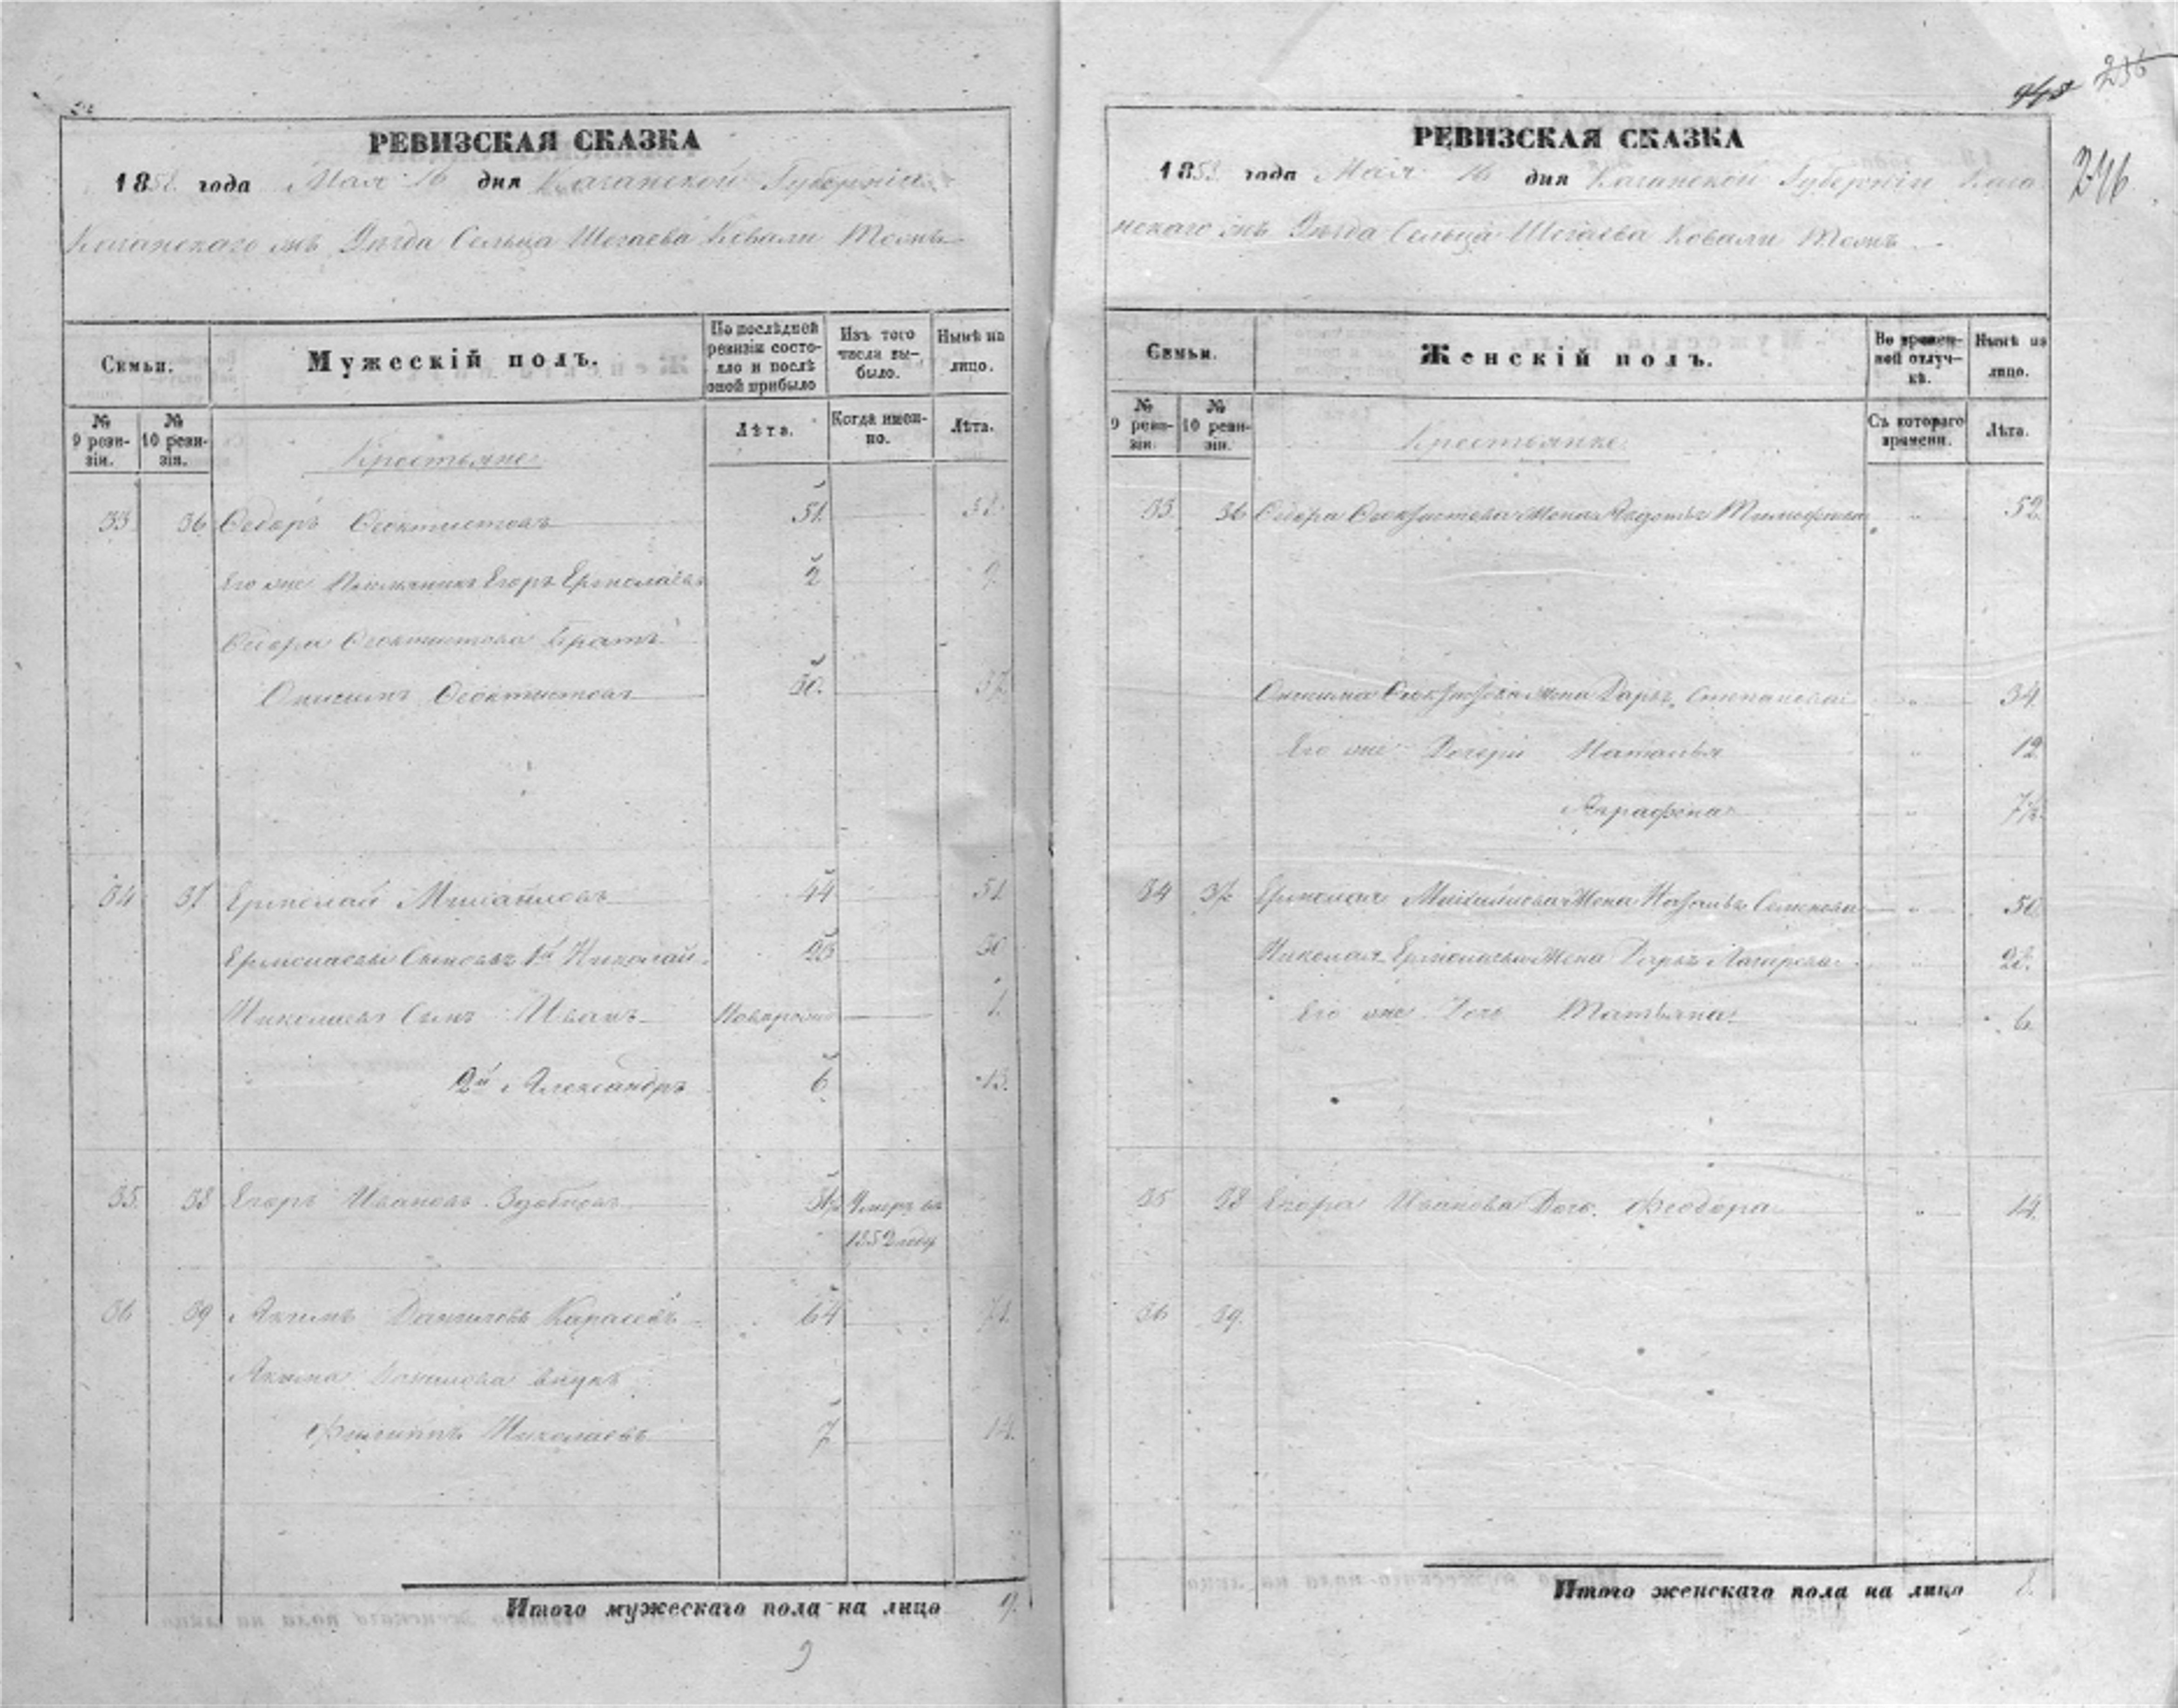 РЕВИЗСКАЯ СКАЗКА
1858 года Мая 16 дня Казанской Губерніи
Казанскаго Уѣзда Сельца Шегаева Ковали тожъ
Семьи.
Мужескій полъ.
По послѣдней ревизіи состояло и послѣ оной прибыло
Изъ того числа выбыло.
Нынѣ на лицо.
№ 9 ревизіи.
№ 10 ревизіи.
Крестьяне
Лѣта.
Когда именно.
Лѣта.
33 36 Ѳедоръ Ѳеоктистовъ 51 58
Его же Племянникъ Егоръ Ермолаевъ 2 9
Ѳедора Ѳеоктистова братъ
Онисимъ Ѳеоктистовъ 30. 37.
34 37 Ермолай Михайловъ 44 51
Ермолаевы Сыновья 1й Николай 23 30
Николаевъ Сынъ Иванъ Новорож 1.
2й Александръ 6 13.
35. 38 Егоръ Ивановъ Умеръ въ
1852 году
36 39 Акимъ Даниловъ Карасевъ 64 71.
Акима Данилова внукъ
Филиппъ Николаевъ 7 14.
Итого мужескаго пола на лицо 9.
9
236
246
РЕВИЗСКАЯ СКАЗКА
1858 года Мая 16 дня Казанской Губерніи Каза
нскаго Уѣзда Сельца Шегаева Ковали тожъ
Семьи.
Женскій полъ.
Во временной отлучкѣ.
Нынѣ на лицо.
№ 9 ревизіи.
№ 10 ревизіи.
Крестьянке
Съ котораго времени.
Лѣта.
33. 36 Ѳедора Ѳеоктистова Жена Авдотья Тимофеева " 52
Онисима Ѳеоктистова жена Дарья Степановна " 34
Его же Дочери Наталья " 12
Аграфена " 7½
34 37 Ермолая Михайлова Жена Наталья Семенова " 50
Николая Ермолаева Жена Дарья Лазарева "
Его же Дочь Татьяна " 6.
35 38 Егора Иванова Дочь Феодора " 14.
36 39.
Итого женскаго пола на лицо 8.